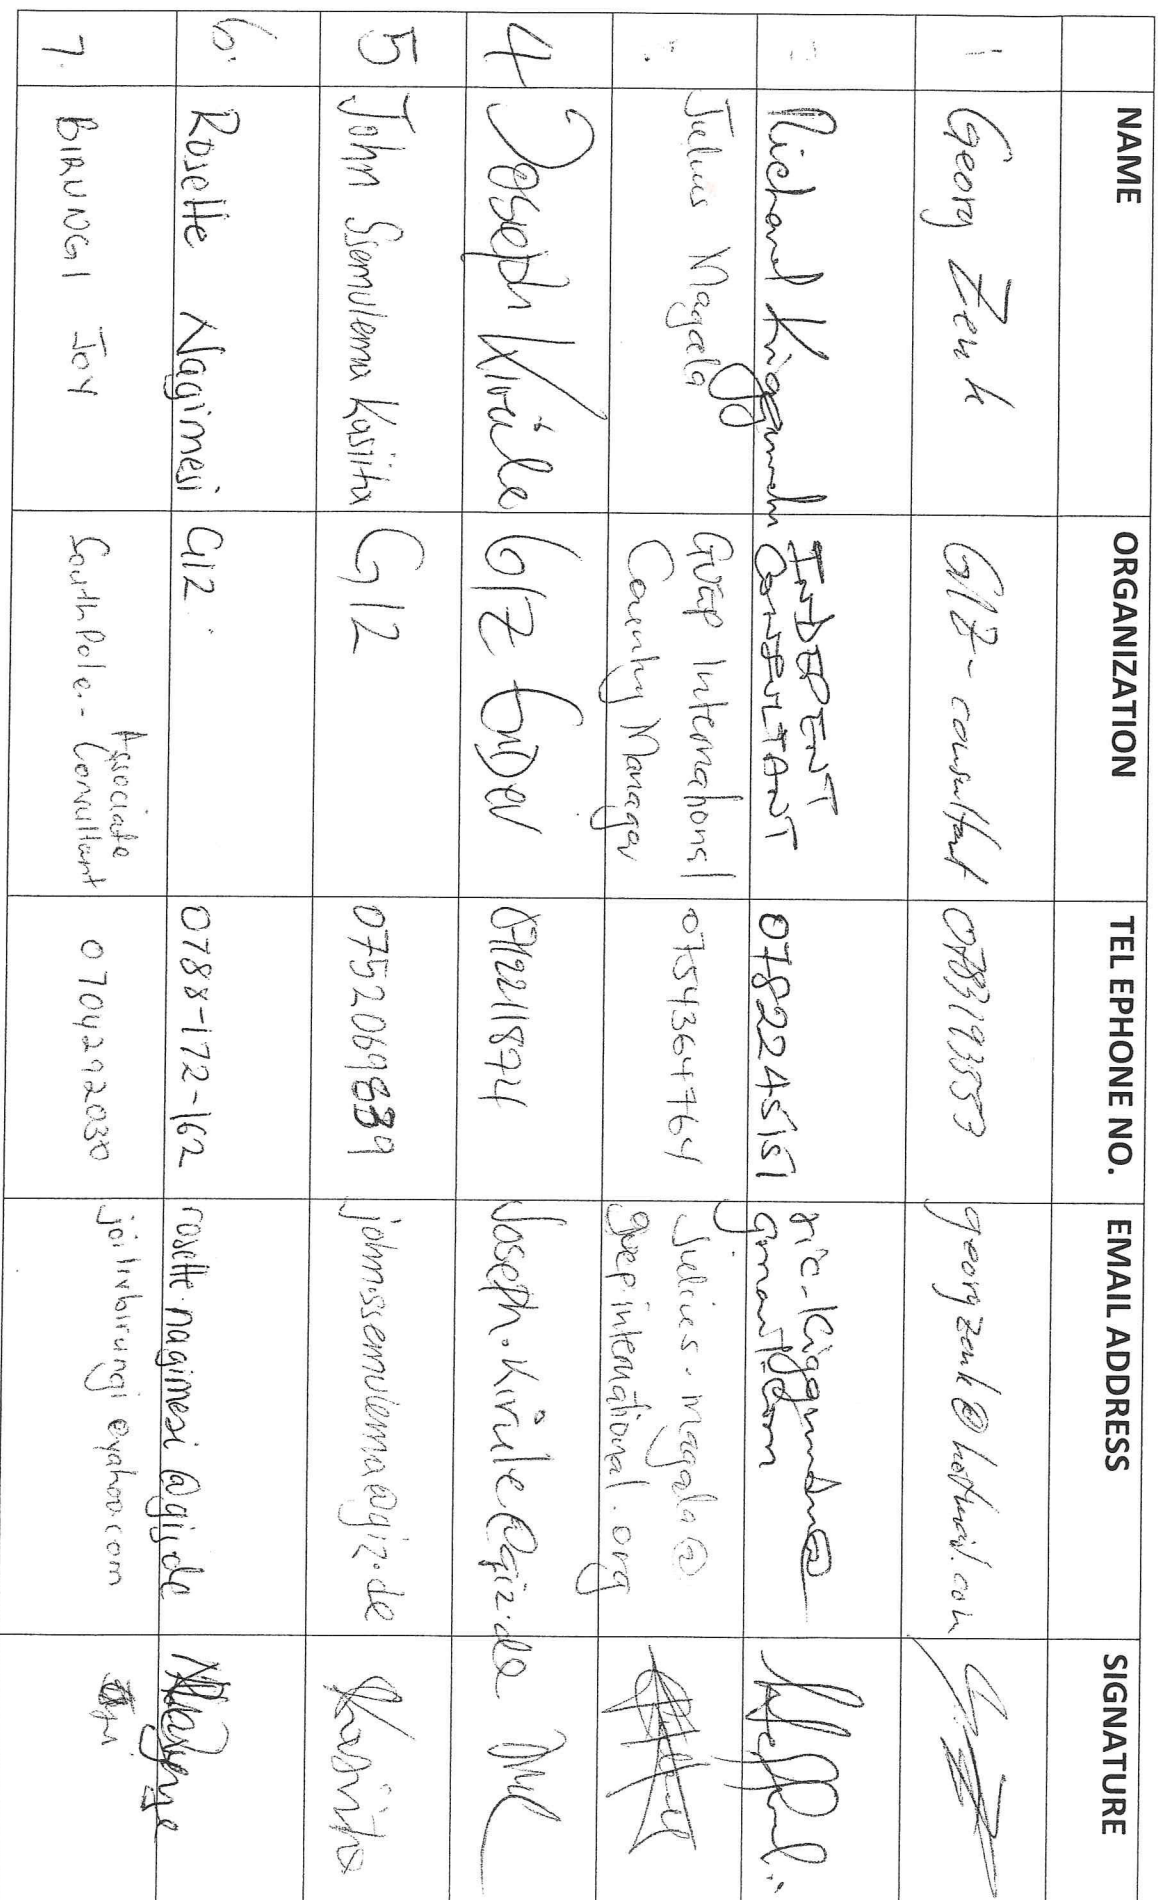 NAME ORGANIZATION TEL EPHONE NO. EMAIL ADDRESS SIGNATURE
1 Georg Zenk GIZ - consultant georgzenk@hotmail.com
Richard Kiggundu INDEPENT 0782245151 ric-kiggundu@
CONSULTANT gmail.com
Julius Magala GVEP International 0754364764 Julius.magala@
Country Manager gvepinternational.org
4 Joseph Kirule GIZ EnDev 0712211874 Joseph.Kirule@giz.de
5 John Ssemulema Kasiita GIZ 0752069839 john.ssemulema@giz.de Kasiita
6. Rosette Nagimesi GIZ. 0788-172-162 rosette.nagimesi@giz.de
7. BIRUNGI JOY South Pole - Associate Consultant 0704292030 @yahoo.com